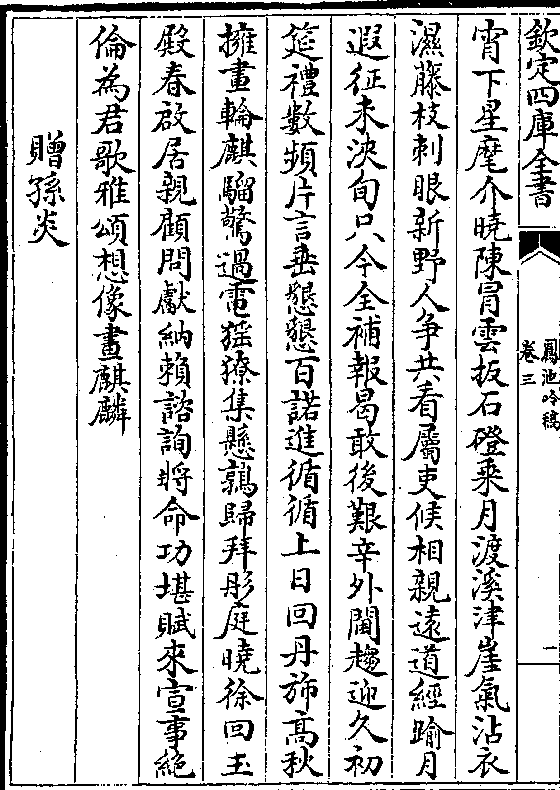 欽定四庫全書
鳳池吟稿
卷三
一
宵下星麾介曉陳冐雲扳石磴乗月渡溪津崖氣沾衣
濕藤枝刺眼新野人爭共看屬吏候相親遠道經踰月
遐征未浹旬只今全補報曷敢後艱辛外閫趨迎久初
筵禮數頻片言垂懇懇百諾進循循上日回丹斾髙秋
擁畫輪麒騮驚過電猺獠集懸鶉歸拜彤庭曉徐回玉
殿春啟居親顧問獻納頼諮詢將命功堪賦來宣事絶
倫為君歌雅頌想像畫麒麟
贈孫炎